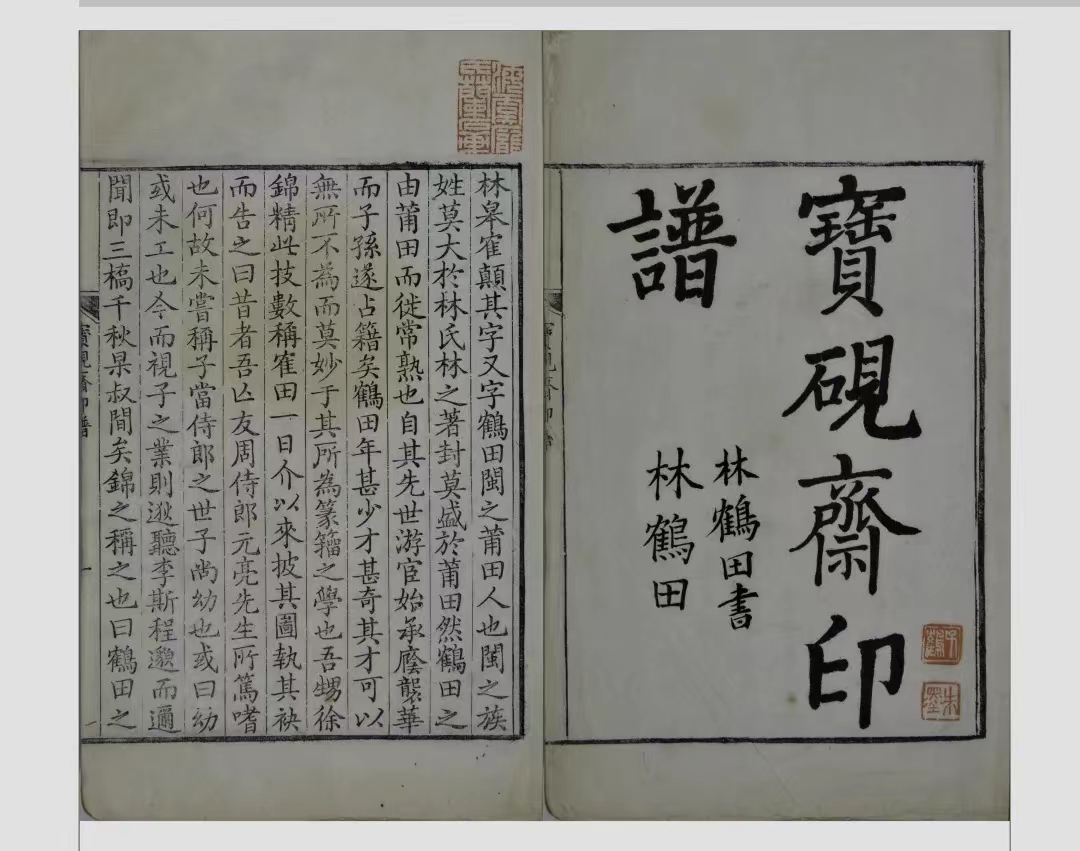 寶硯齋印
譜
林鶴田書
林鶴田
林皋寉顛其字又字鶴田閩之莆田人也閩之族
姓莫大於林氏林之著封莫盛於莆田然鶴田之
由莆田而徙常熟也自其先世游宦始承廕襲華
而子孫遂占籍矣鶴田年甚少才甚奇其才可以
無所不為而莫妙于其所為篆籕之學也吾甥徐
錦精此技數稱寉田一日介以來披其圖執其袂
而告之曰昔者吾亾友周侍郎元亮先生所篤嗜
也何故未嘗稱子當侍郎之世子尚幼也或曰幼
或未工也今而視子之業則逖聽李斯程邈而邇
聞即三橋千秋杲叔間矣錦之稱之也曰鶴田之
寶硯齋印譜
一